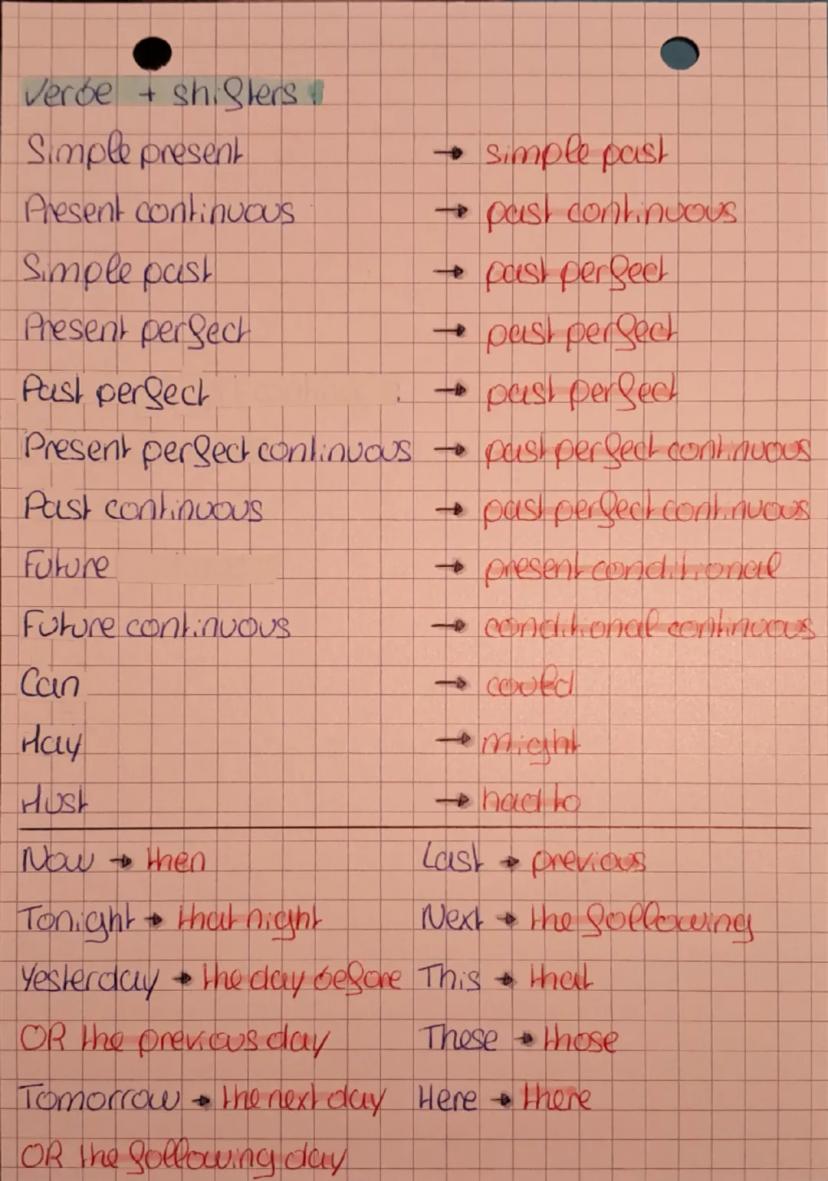 Verbe + shifters
Simple present → simple past
Present continuous → past continuous
Simple past → past perfect
Present perfect → past perfect
Past perfect → past perfect
Present perfect continuous → past perfect continuous
Past continuous → past perfect continuous
Future → present conditional
Future continuous → conditional continuous
Can → could
May → might
Must → had to
Now → then
Last → previous
Tonight → that night
Next → the following
Yesterday → the day before
This → that
OR the previous day
These → those
Tomorrow → the next day
Here → there
OR the following day